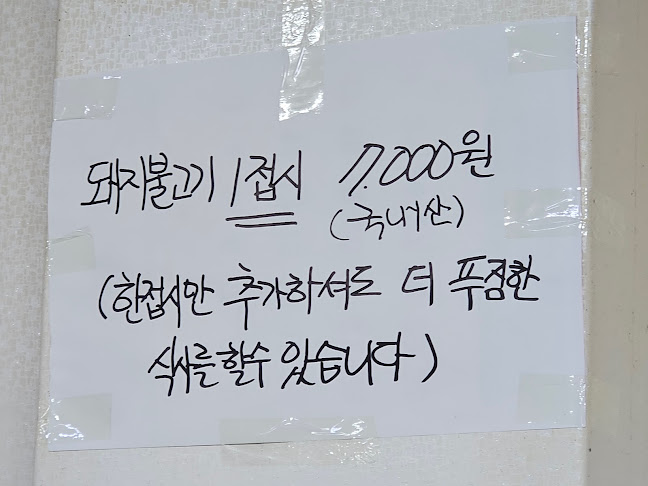 돼지불고기 1접시 7.000원
(국내산)
(한접시만 추가하셔도 더 푸짐한
식사를 할수 있습니다)